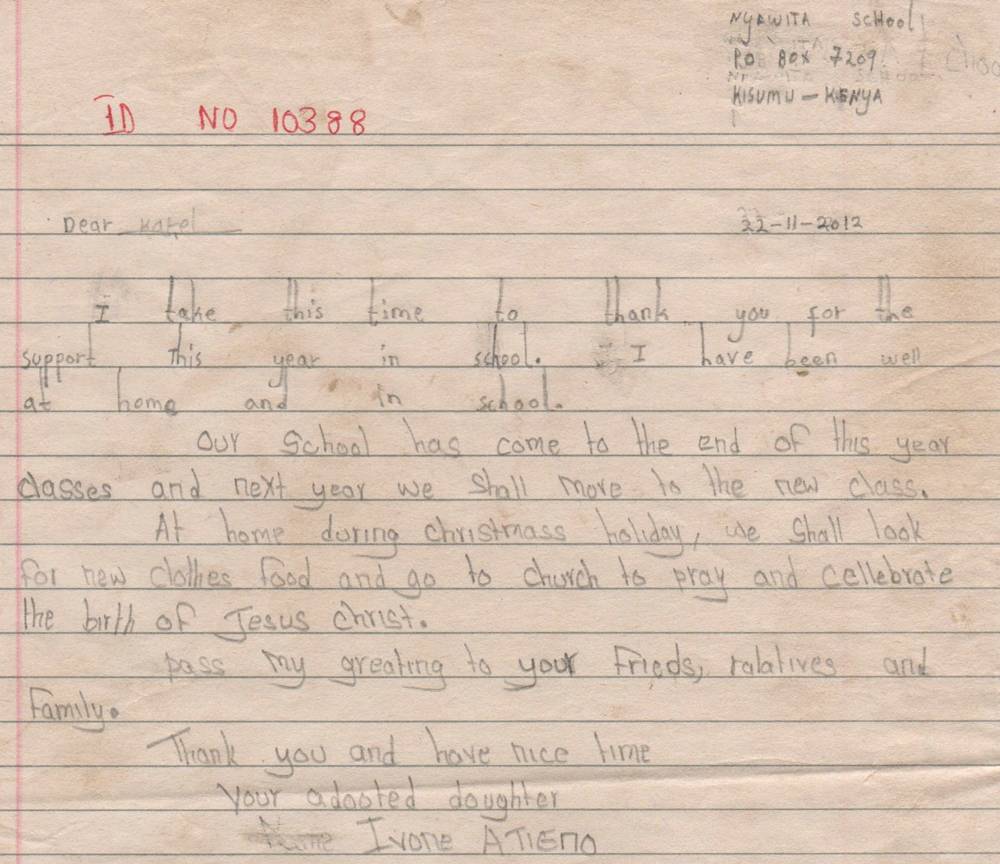 NYAWITA SCHOOL
PO BOX 7209
KISUMU - KENYA
ID NO 10388
Dear Karel
22-11-2012
I take this time to thank you for the
support This year in school. I have been well
at home and in school.
Our School has come to the end of this year
classes and next year we shall move to the new class.
At home during christmass holiday, we shall look
for new clothes food and go to church to pray and cellebrate
the birth of Jesus christ.
pass my greating to your Frieds, ralatives and
Family.
Thank you and have nice time
Your adooted doughter
Ivone ATIENO